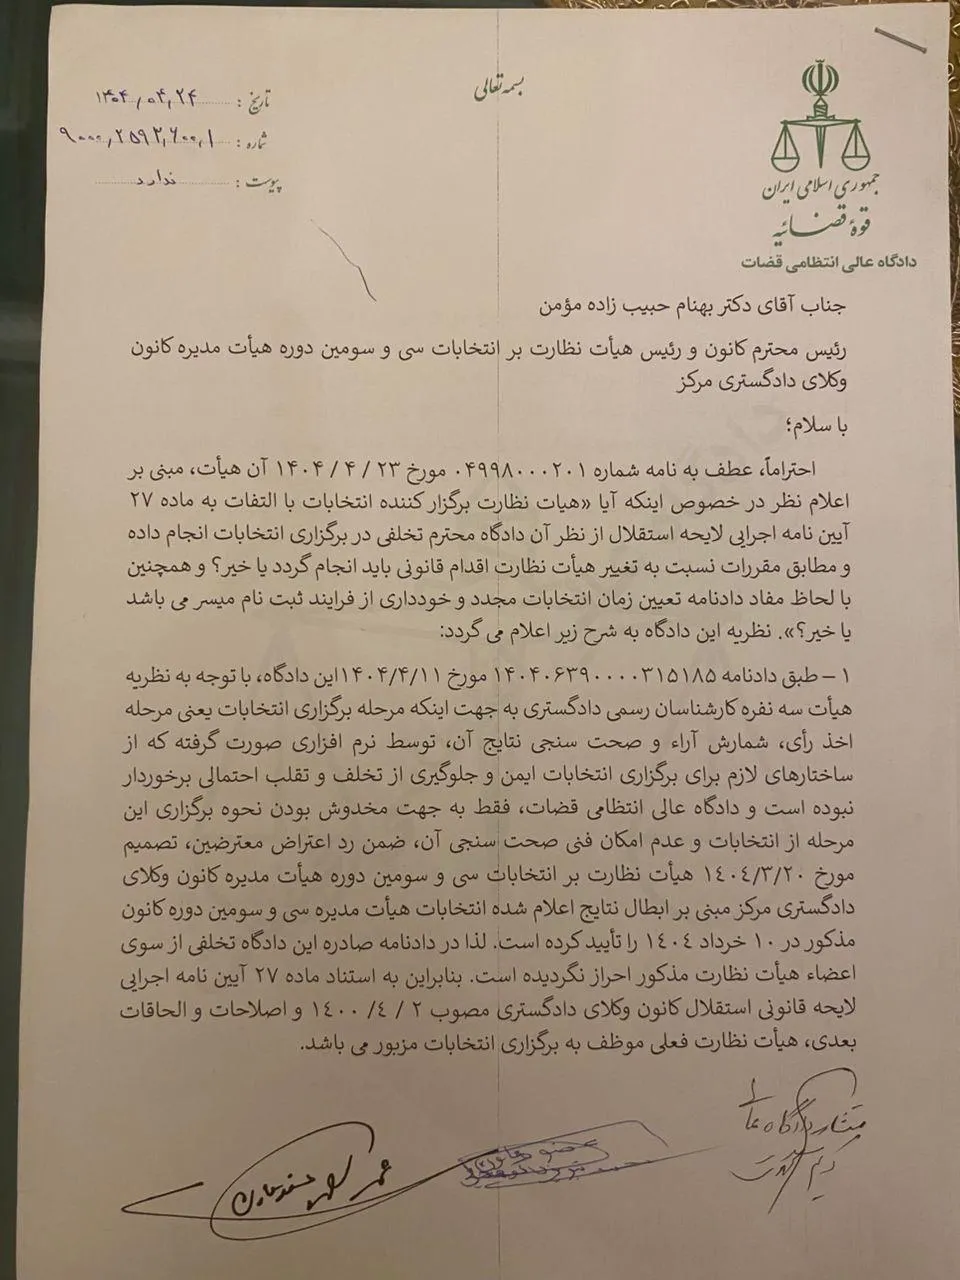 بسمه تعالی
تاریخ : ۱۴۰۴/۰۴/۲۴
شماره : ۹۰۰۰/۲۵۹۲/۶۰۰/۱
پیوست : ندارد
جمهوری اسلامی ایران
قوهٔ قضائیه
دادگاه عالی انتظامی قضات
جناب آقای دکتر بهنام حبیب زاده مؤمن
رئیس محترم کانون و رئیس هیأت نظارت بر انتخابات سی و سومین دوره هیأت مدیره کانون
وکلای دادگستری مرکز
با سلام؛
احتراماً، عطف به نامه شماره ۰۴۹۹۸۰۰۰۲۰۱ مورخ ۲۳ / ۴ / ۱۴۰۴ آن هیأت، مبنی بر
اعلام نظر در خصوص اینکه آیا «هیات نظارت برگزار کننده انتخابات با التفات به ماده ۲۷
آیین نامه اجرایی لایحه استقلال از نظر آن دادگاه محترم تخلفی در برگزاری انتخابات انجام داده
و مطابق مقررات نسبت به تغییر هیأت نظارت اقدام قانونی باید انجام گردد یا خیر؟ و همچنین
با لحاظ مفاد دادنامه تعیین زمان انتخابات مجدد و خودداری از فرایند ثبت نام میسر می باشد
یا خیر؟». نظریه این دادگاه به شرح زیر اعلام می گردد:
۱ – طبق دادنامه ۱۴۰۴۰۶۳۹۰۰۰۰۳۱۵۱۸۵ مورخ ۱۴۰۴/۴/۱۱این دادگاه، با توجه به نظریه
هیأت سه نفره کارشناسان رسمی دادگستری به جهت اینکه مرحله برگزاری انتخابات یعنی مرحله
اخذ رأی، شمارش آراء و صحت سنجی نتایج آن، توسط نرم افزاری صورت گرفته که از
ساختارهای لازم برای برگزاری انتخابات ایمن و جلوگیری از تخلف و تقلب احتمالی برخوردار
نبوده است و دادگاه عالی انتظامی قضات، فقط به جهت مخدوش بودن نحوه برگزاری این
مرحله از انتخابات و عدم امکان فنی صحت سنجی آن، ضمن رد اعتراض معترضین، تصمیم
مورخ ۱۴۰۴/۳/۲۰ هیأت نظارت بر انتخابات سی و سومین دوره هیأت مدیره کانون وکلای
دادگستری مرکز مبنی بر ابطال نتایج اعلام شده انتخابات هیأت مدیره سی و سومین دوره کانون
مذکور در ۱۰ خرداد ۱۴۰۴ را تأیید کرده است. لذا در دادنامه صادره این دادگاه تخلفی از سوی
اعضاء هیأت نظارت مذکور احراز نگردیده است. بنابراین به استناد ماده ۲۷ آیین نامه اجرایی
لایحه قانونی استقلال کانون وکلای دادگستری مصوب ۲ / ۴/ ۱۴۰۰ و اصلاحات و الحاقات
بعدی، هیأت نظارت فعلی موظف به برگزاری انتخابات مزبور می باشد.
مستشار دادگاه عالی